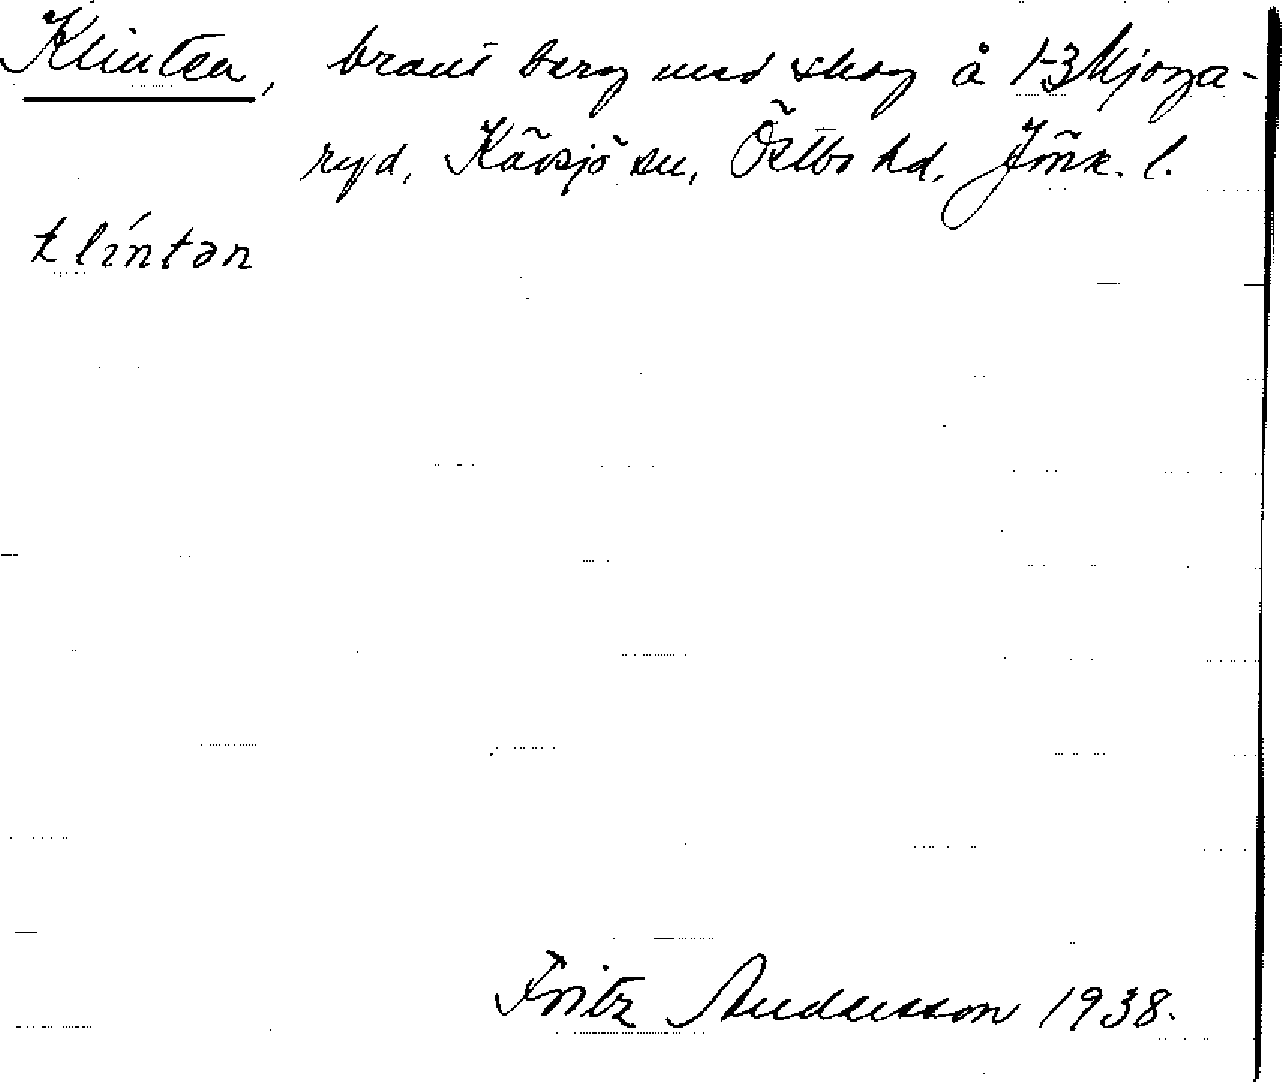 Klinten, brant berg med skog å 1-3 Mjoga-
ryd, Kävsjö sn, Östbo hd, Jönk. l.
klíntən
Fritz Andersson 1938.